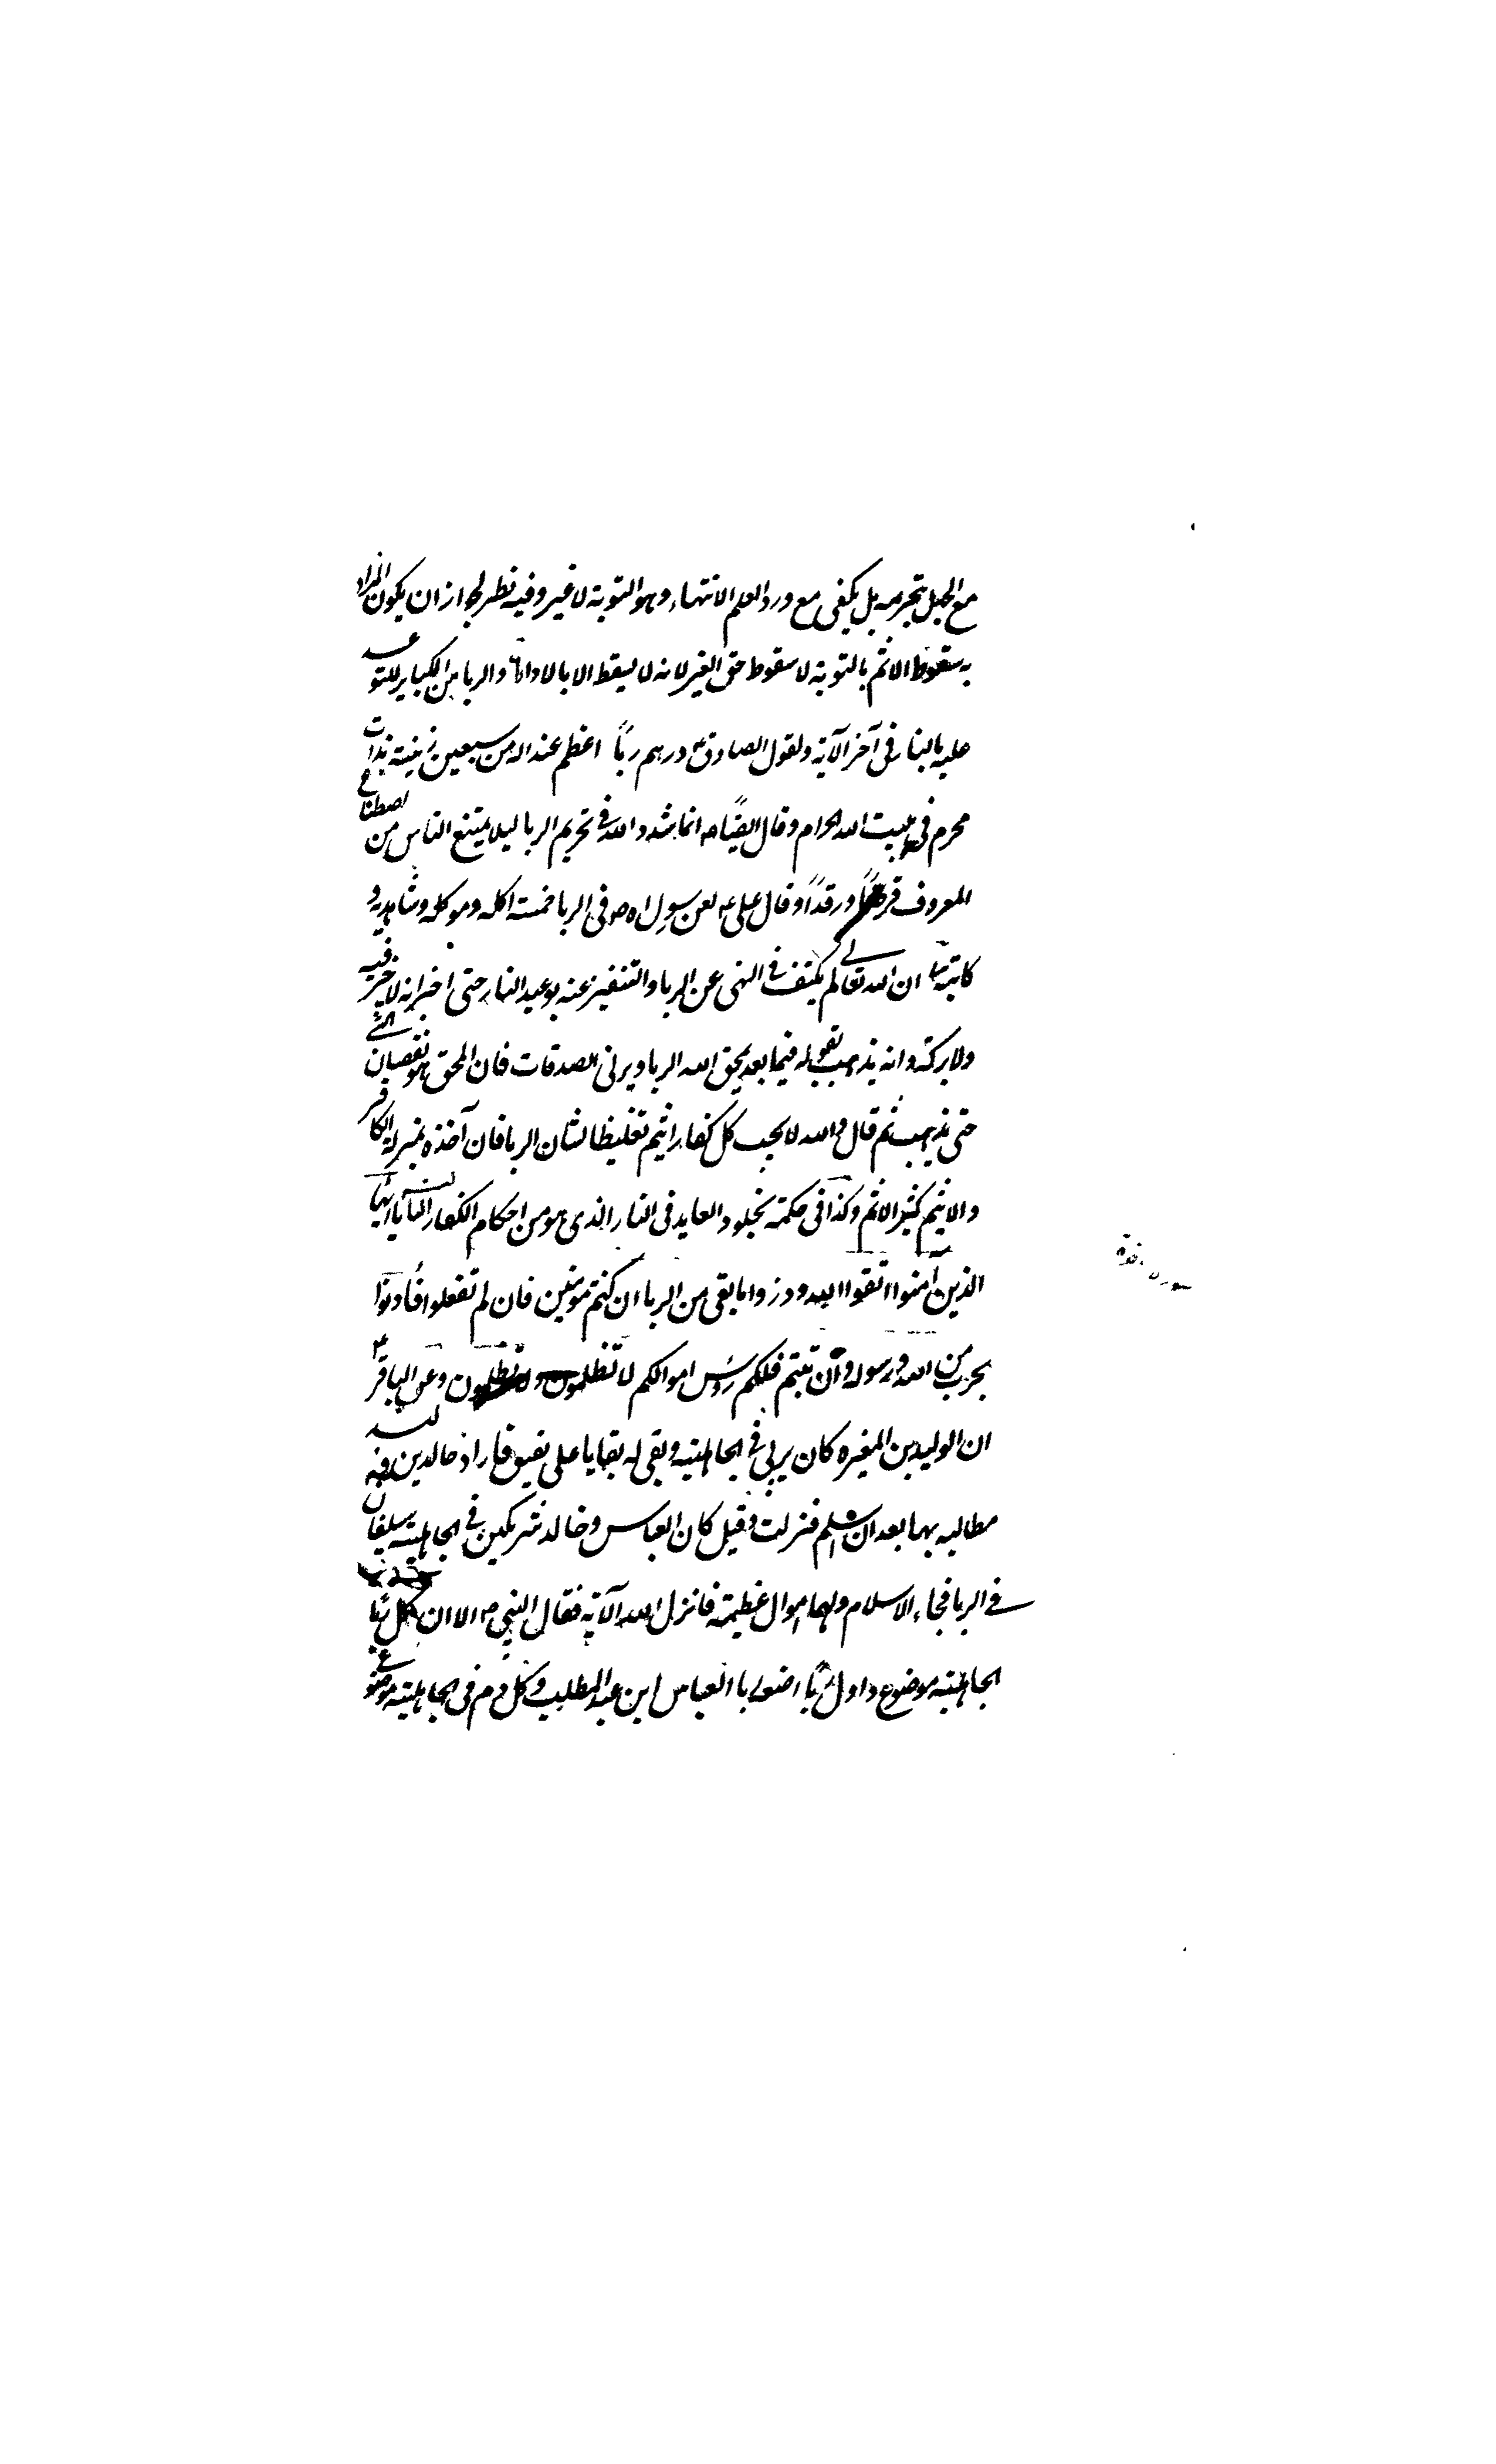 مع الجهل بتحريمه بل يكفى مع ورد العلم الانتهاء وهو التوبة لا غير وفيه نظر لجواز ان يكون المراد
به سقوط الاثم بالتوبة لا سقوط حق الغير لانه لا يسقط الا بالاداء والربا من الكباير للتوعد
عليه بالنار فى آخر الآية ولقول الصادق ع درهم ربًا اعظم عند الله من سبعين زنية بذات
محرم فى بيت الله الحرام وقال ايضًا ع انما شدد الله فى تحريم الربا ليلا يمتنع الناس من اصطناع
المعروف قرضًا ورفدًا وقال على ع لعن رسول الله ص فى الربا خمسة اكله وموكله وشاهديه و
كاتبه ان الله تعالى لم يكتف فى النهى عن الربا والتنفير عنه بوعيد النار حتى اخبر انه لا خير فيه
ولا بركة وانه يذهب بقوله فيما بعد يمحق الله الربا ويربى الصدقات فان المحق هو نقصان الشئ
حتى يذهب ثم قال والله لا يحب كل كفار اثيم تغليظا لشان الربا فان آخذه بمنزلة الكافر
والاثيم كثير الاثم وكذا فى حكمة بخلود العايد فى النار الذى هو من احكام الكفار الثالثة يا ايها
الذين آمنوا اتقوا الله وذروا ما بقى من الربا ان كنتم مؤمنين فان لم تفعلوا فأذنوا
بحرب من الله ورسوله وان تبتم فلكم رؤس اموالكم لا تظلمون ولا تظلمون وعن الباقر ع
ان الوليد بن المغيره كان يربى فى الجاهلية وبقى له بقايا على ثقيف فاراد خالد بن وليد
مطالبه بها بعد ان اسلم فنزلت وقيل كان العباس وخالد شريكين فى الجاهلية يسلفان
فى الربا فجاء الاسلام ولهما اموال عظيمة فانزل الله الآية فقال النبى ص الا ان كل ربا
الجاهلية موضوع واول ربًا اضعه ربا العباس ابن عبد المطلب وكل دم فى الجاهلية موضوع